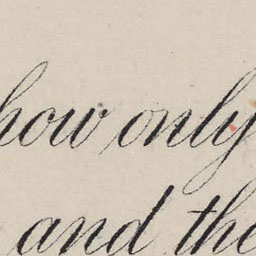 how only
and the